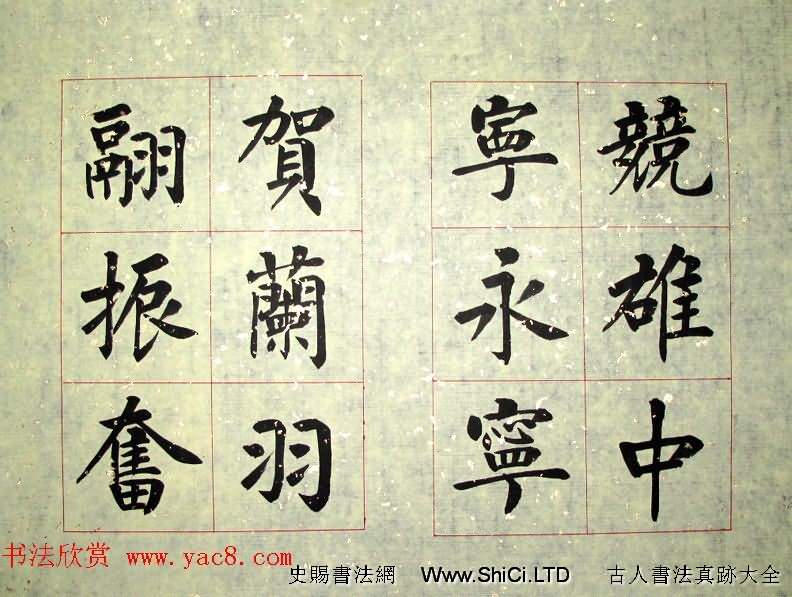 競雄中
寧永寧
賀蘭羽
翮振奮
书法欣赏 www.yac8.com
史賜書法網 Www.ShiCi.LTD 古人書法真跡大全